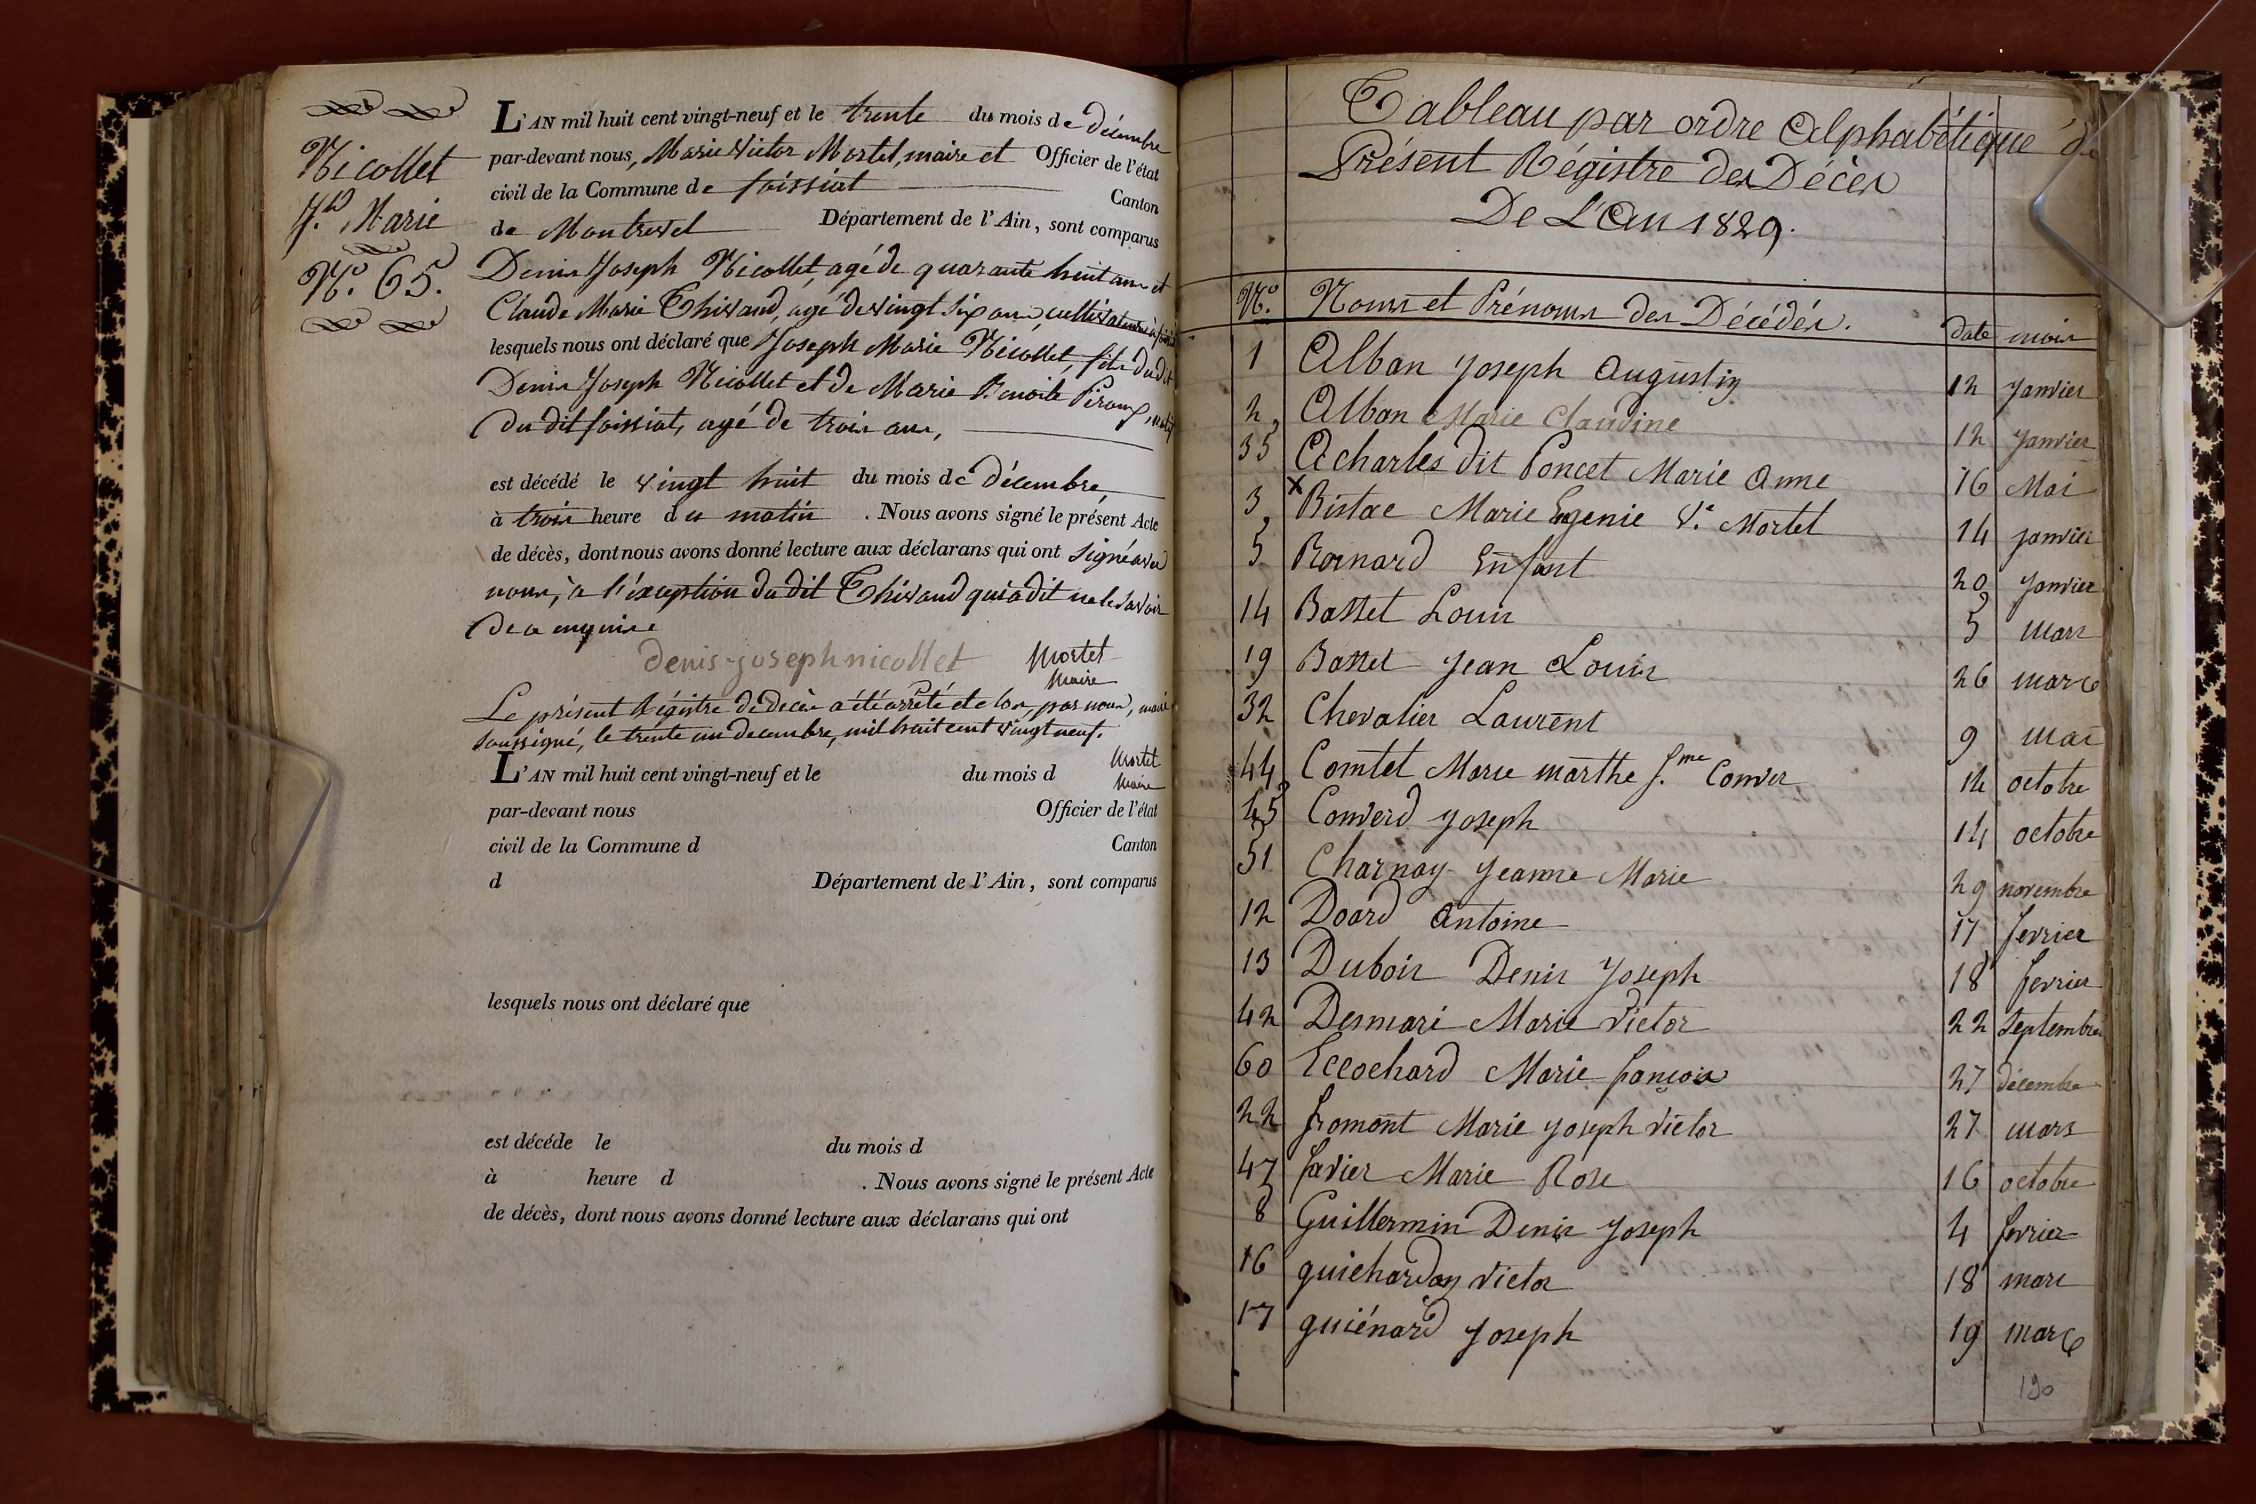 Nicollet
Jh. Marie
N.o 65.
L'AN mil huit cent vingt-neuf et le trente du mois de décembre
par-devant nous, Marie Victor Mortel, maire et Officier de l'état
civil de la Commune de foissiat Canton
de Montrevel Département de l'Ain, sont comparus
Denis Joseph Nicollet, agé de quarante huit ans et
Claude Marie Thivaud, agé de vingt six ans, cultivateurs à foissiat
lesquels nous ont déclaré que Joseph Marie Nicollet, fils du dit
Denis Joseph Nicollet et de Marie Benoite Piroux, natif
du dit foissiat, agé de trois ans,
est décédé le vingt huit du mois de décembre,
à trois heure du matin . Nous avons signé le présent Acte
de décès, dont nous avons donné lecture aux déclarans qui ont signé avec
nous, à l'exception du dit Thivaud qui a dit ne le savoir
de ce enquis.
denis-joseph nicollet Mortel
Maire
Le présent Régistre de decès a été arrêté et clos, par nous, maire
soussigné, le trente un decembre, mil huit cent vingt neuf.
Mortel
Maire
L'AN mil huit cent vingt-neuf et le du mois d
par-devant nous Officier de l'état
civil de la Commune d Canton
d Département de l'Ain, sont comparus
lesquels nous ont déclaré que
est décéde le du mois d
à heure d . Nous avons signé le présent Acte
de décès, dont nous avons donné lecture aux déclarans qui ont
Tableau par ordre Alphabétique du
Présent Régistre des Décès
De L'An 1829.
N.o Noms et Prénoms des Décédés. date mois
1 Alban Joseph Augustin 12 Janvier
2 Alban Marie Claudine 12 Janvier
35 Acharles dit Poncet Marie Anne 16 Mai
3 x Bistac Marie Eugenie Ve Mortel 14 janvier
5 Bornard Enfant 20 Janvier
14 Basset Louis 5 mars
19 Basset Jean Louis 26 mars
32 Chevalier Laurent 9 mai
44 Comtet Marie marthe f.me Conver 14 octobre
45 Converd Joseph 14 octobre
51 Charnay Jeanne Marie 29 novembre
12 Doard Antoine 17 fevrier
13 Dubois Denis Joseph 18 fevrier
42 Desmari Marie Victor 22 septembre
60 Ecochard Marie françois 27 décembre
22 fromont Marie Joseph Victor 27 mars
47 favier Marie Rose 16 octobre
8 Guillermin Denis Joseph 4 fevrier
16 guichardon Victor 18 mars
17 guiénard Joseph 19 mars
190